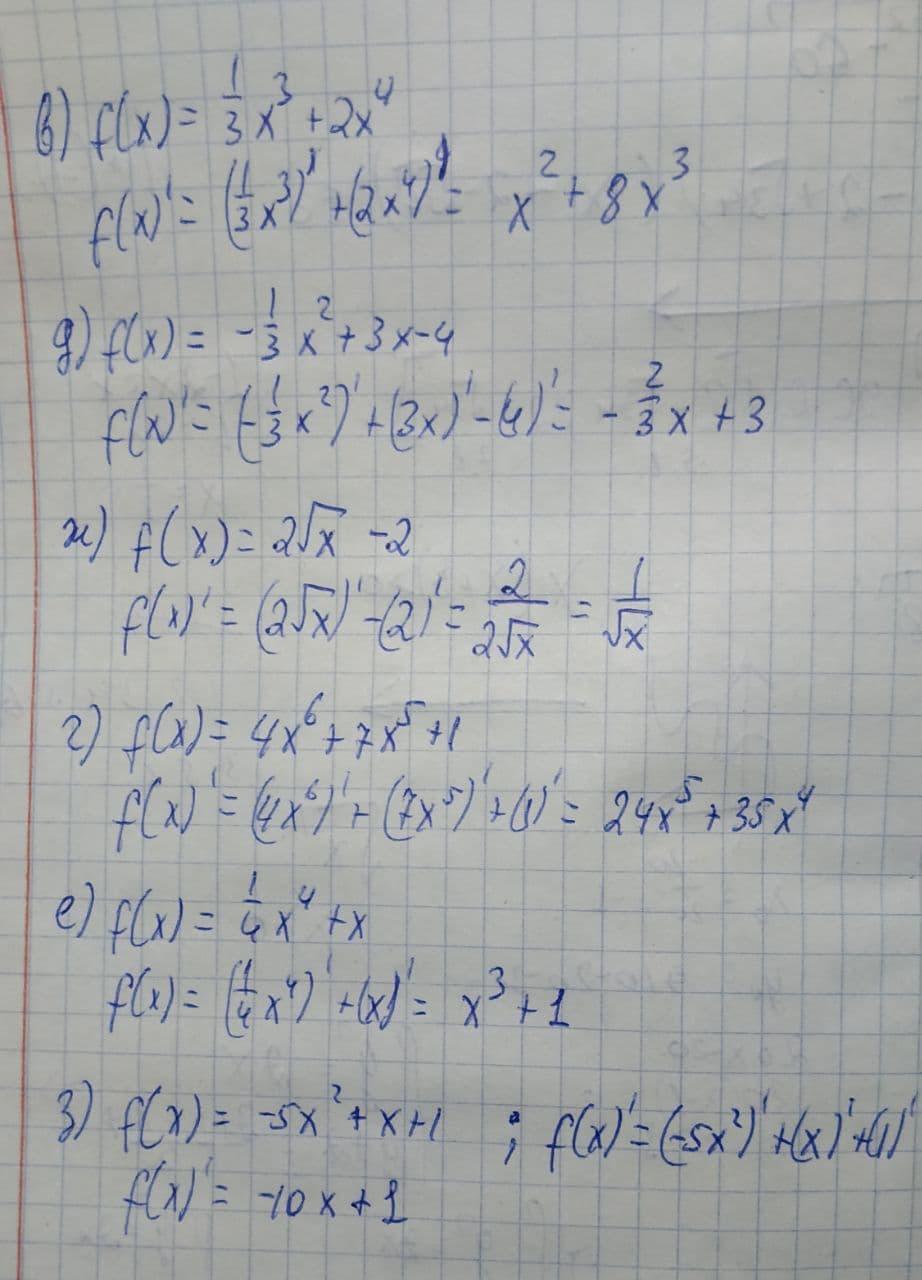 в) f(x) = 1/3 x³ + 2x⁴
f(x)' = (1/3 x³)' + (2x⁴)' = x² + 8x³
д) f(x) = -1/3 x² + 3x - 4
f(x)' = (-1/3 x²)' + (3x)' - (4)' = - 2/3 x + 3
ж) f(x) = 2√x - 2
f(x)' = (2√x)' - (2)' = 2/(2√x) = 1/√x
г) f(x) = 4x⁶ + 7x⁵ + 1
f(x)' = (4x⁶)' + (7x⁵)' + (1)' = 24x⁵ + 35x⁴
е) f(x) = 1/4 x⁴ + x
f(x) = (1/4 x⁴)' + (x)' = x³ + 1
з) f(x) = -5x² + x + 1 ; f(x)' = (-5x²)' + (x)' + (1)'
f(x)' = -10x + 1